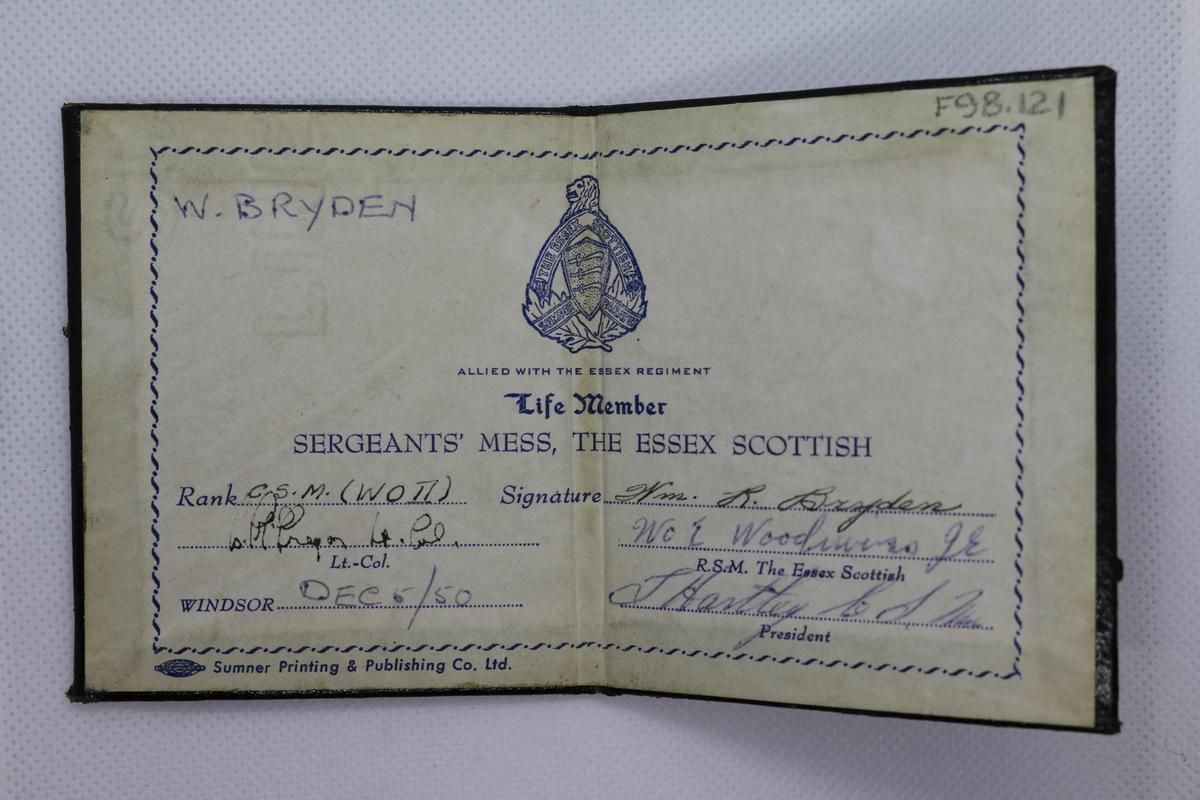 F98.121
W. BRYDEN
THE ESSEX SCOTTISH
SEMPER PARATUS
ALLIED WITH THE ESSEX REGIMENT
Life Member
SERGEANTS' MESS, THE ESSEX SCOTTISH
Rank C.S.M. (WO II) Signature Wm. R. Bryden
Lt. Col. WO I
Lt.-Col. R.S.M. The Essex Scottish
WINDSOR DEC 5/50 Hartley C S M
President
Sumner Printing & Publishing Co. Ltd.